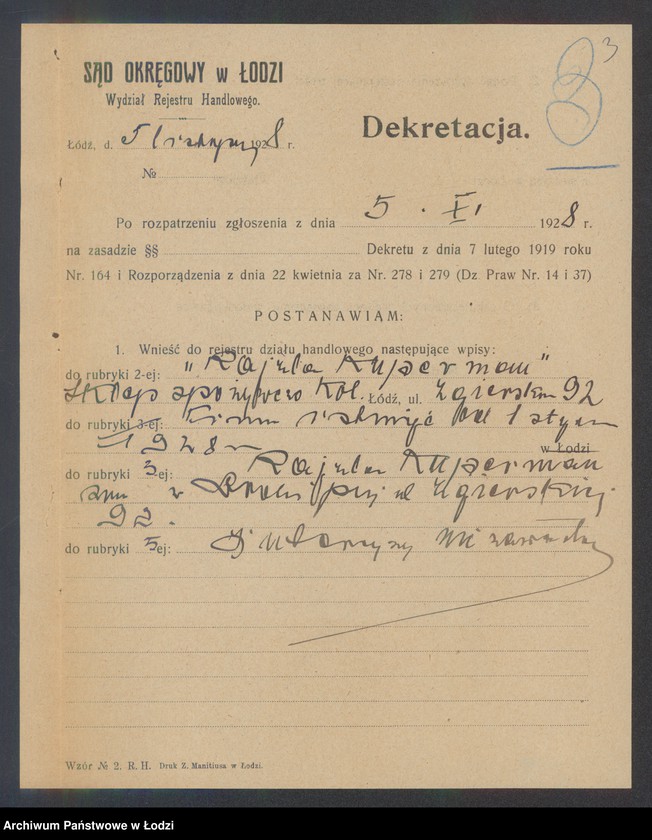 3
SĄD OKRĘGOWY w ŁODZI
Wydział Rejestru Handlowego.
Dekretacja.
Łódź, d. 5 listopada 1928 r.
№
Po rozpatrzeniu zgłoszenia z dnia 5. XI 1928 r.
na zasadzie §§ Dekretu z dnia 7 lutego 1919 roku
Nr. 164 i Rozporządzenia z dnia 22 kwietnia za Nr. 278 i 279 (Dz. Praw Nr. 14 i 37)
POSTANAWIAM:
1. Wnieść do rejestru działu handlowego następujące wpisy:
do rubryki 2-ej: "Rajzla Kuperman"
sklep spożywczo kol. Łódź, ul. Zgierska 92
do rubryki 3-ej: Firma istnieje od 1
1928 r w Łodzi
do rubryki 3ej: Rajzla Kuperman
zam w ul Zgierskiej
92.
do rubryki 5ej: Intercyzy nie zawarła
Wzór № 2. R. H. Druk Z. Manitiusa w Łodzi.
Archiwum Państwowe w Łodzi